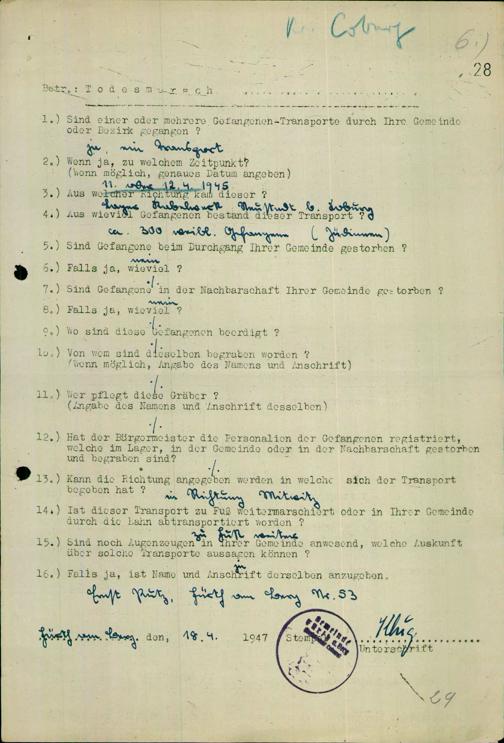 Kr. Coburg
6.)
28
Betr.: Todesmarsch
1.) Sind einer oder mehrere Gefangenen-Transporte durch Ihre Gemeinde
oder Bezirk gegangen ?
ja, ein Transport
2.) Wenn ja, zu welchem Zeitpunkt?
(wenn möglich, genaues Datum angeben)
11. oder 12.4. 1945
3.) Aus welcher Richtung kam dieser ?
Lager Kabelwerk Neustadt b. Coburg
4.) Aus wieviel Gefangenen bestand dieser Transport ?
ca. 300 weibl. Gefangene (Jüdinnen)
5.) Sind Gefangene beim Durchgang Ihrer Gemeinde gestorben ?
nein
6.) Falls ja, wieviel ?
./.
7.) Sind Gefangene in der Nachbarschaft Ihrer Gemeinde gestorben ?
nein
8.) Falls ja, wieviel ?
./.
9.) Wo sind diese Gefangenen beerdigt ?
./.
10.) Von wem sind dieselben begraben worden ?
(Wenn möglich, Angabe des Namens und Anschrift)
./.
11.) Wer pflegt diese Gräber ?
(Angabe des Namens und Anschrift desselben)
./.
12.) Hat der Bürgermeister die Personalien der Gefangenen registriert,
welche im Lager, in der Gemeinde oder in der Nachbarschaft gestorben
und begraben sind?
./.
13.) Kann die Richtung angegeben werden in welche sich der Transport
begeben hat ?
in Richtung Mitwitz
14.) Ist dieser Transport zu Fuß weitermarschiert oder in Ihrer Gemeinde
durch die Bahn abtransportiert worden ?
zu Fuß weiter
15.) Sind noch Augenzeugen in Ihrer Gemeinde anwesend, welche Auskunft
über solche Transporte aussagen können ?
ja
16.) Falls ja, ist Name und Anschrift derselben anzugeben.
Ernst Rutz, Fürth am Berg Nr. 53
Fürth am Berg, den, 18.4. 1947 Stempel
Klug
Unterschrift
Gemeinde
Fürth a. Berg
29